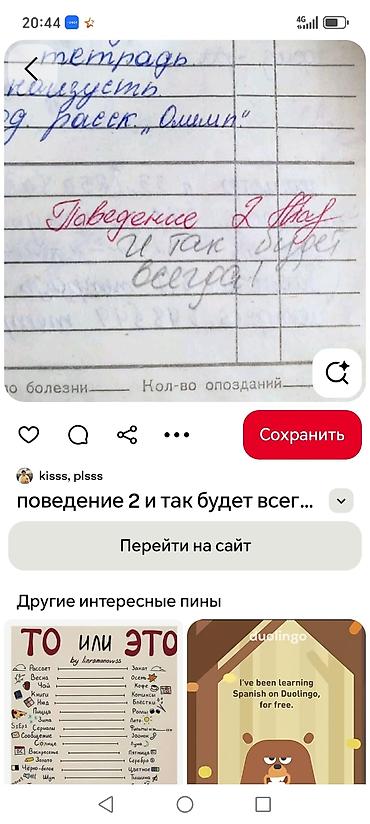 20:44
4G
тетрадь
наизусть
расск. „Олимп“
Поведение 2
И так будет
всегда!
по болезни Кол-во опозданий
Сохранить
kisss, plsss
поведение 2 и так будет всег...
Перейти на сайт
Другие интересные пины
ТО ИЛИ ЭТО
by linramanowss
Рассвет Закат
Весна Осень
Чай Кофе
Книги Комиксы
Мёд Блёстки
Пицца Роллы
Зима Лето
Сериалы
Сообщение Звонок
Солнце Луна
Воскресенье Пятница
Золото Серебро
Чёрно-белое Цветное
Шум Тишина
duolingo
I've been learning
Spanish on Duolingo,
for free.